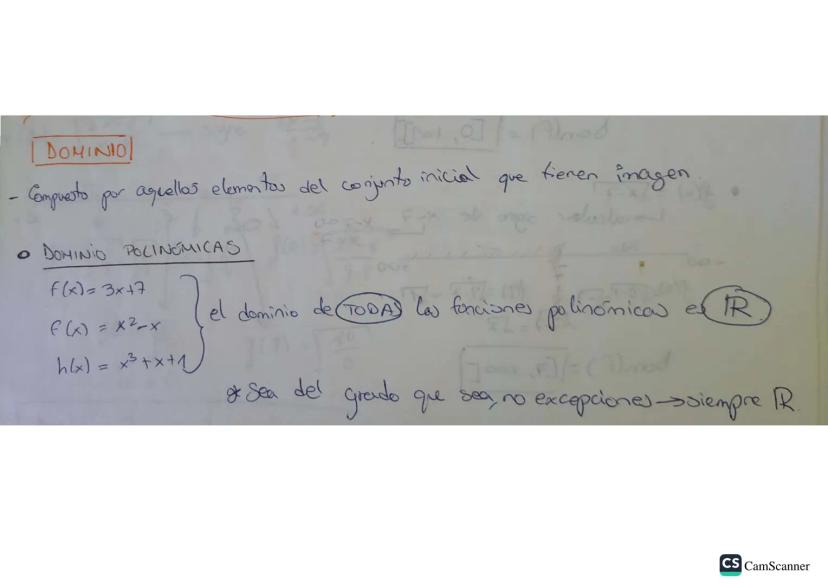 DOMINIO
- Compuesto por aquellos elementos del conjunto inicial que tienen imagen.
• DOMINIO POLINÓMICAS
f(x) = 3x+7
f(x) = x²-x
h(x) = x³+x+1
el dominio de TODAS las funciones polinómicas es ℝ
* Sea del grado que sea, no excepciones → siempre ℝ.
CS CamScanner